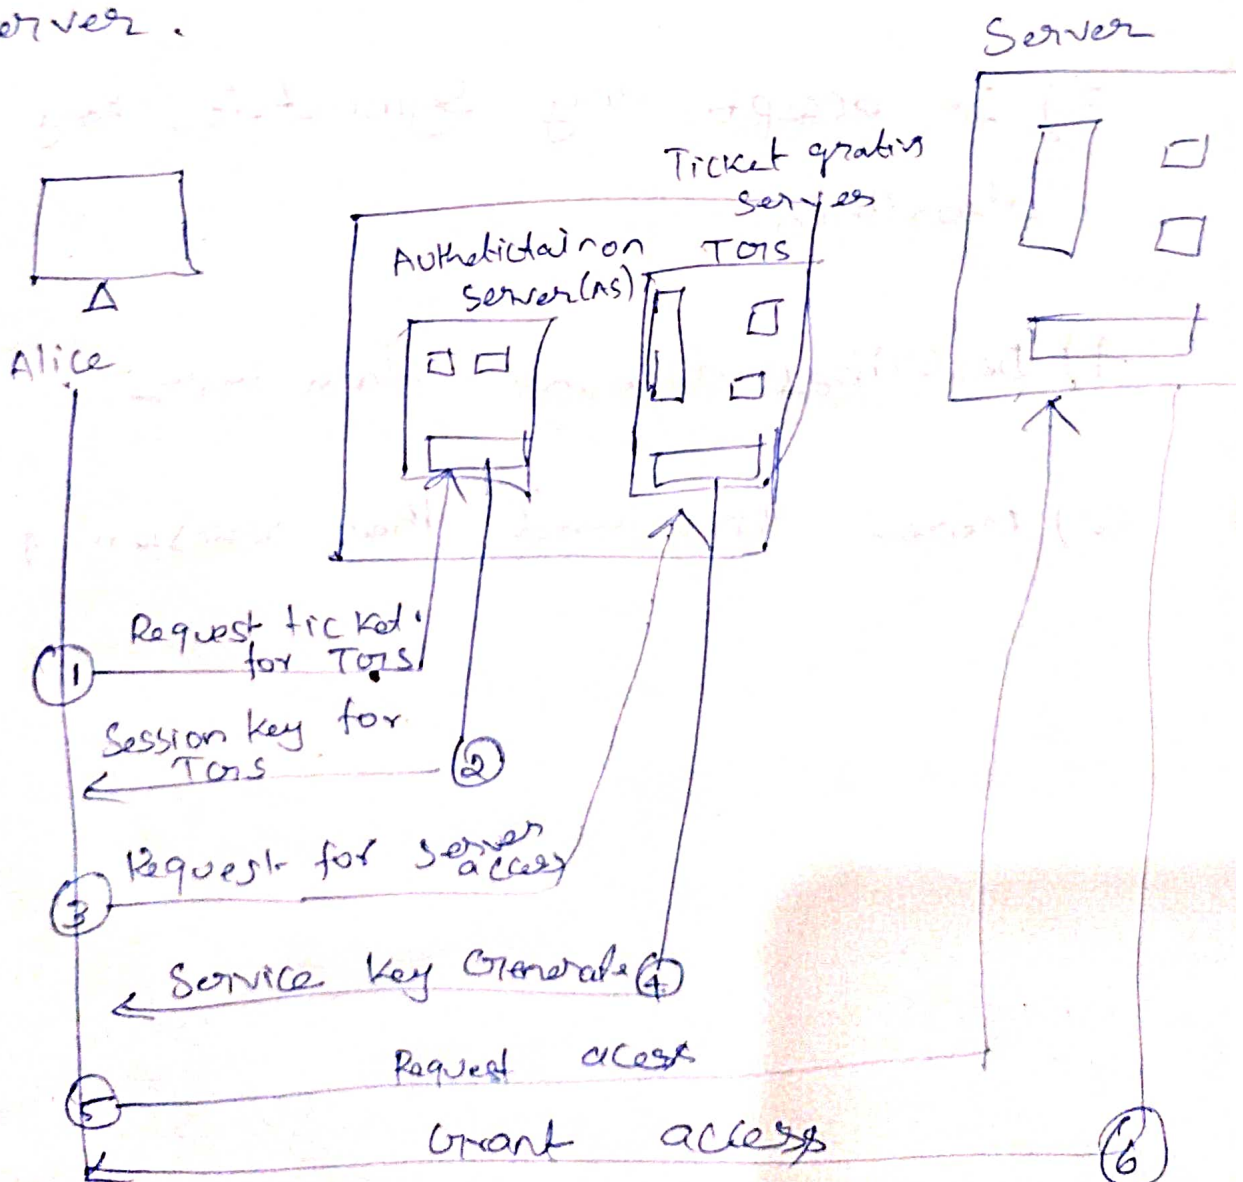 erver.
Server
Ticket grating
server
Authetictairon
TGS
server(AS)
Alice
Request ticket
for TGS
1
Session key for
TGS
2
Request for server
access
3
Service key Generate
4
Request acess
5
Grant access
6